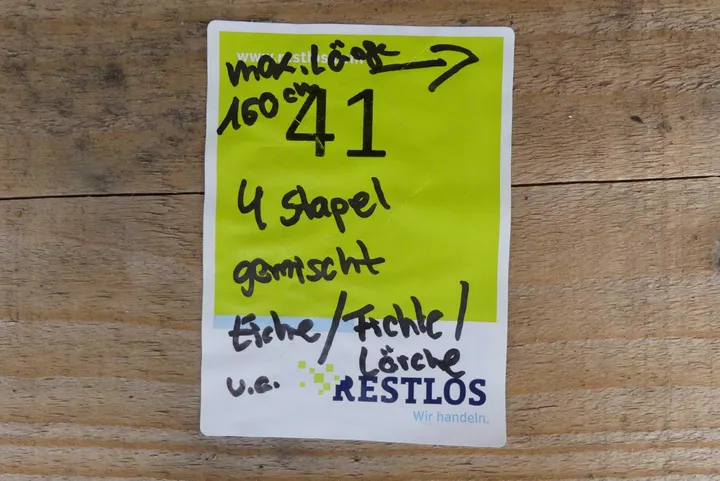 www.restlos
max. Länge →
160 cm
41
4 Stapel
gemischt
Eiche / Fichte /
Lärche
u.a.
RESTLOS
Wir handeln.